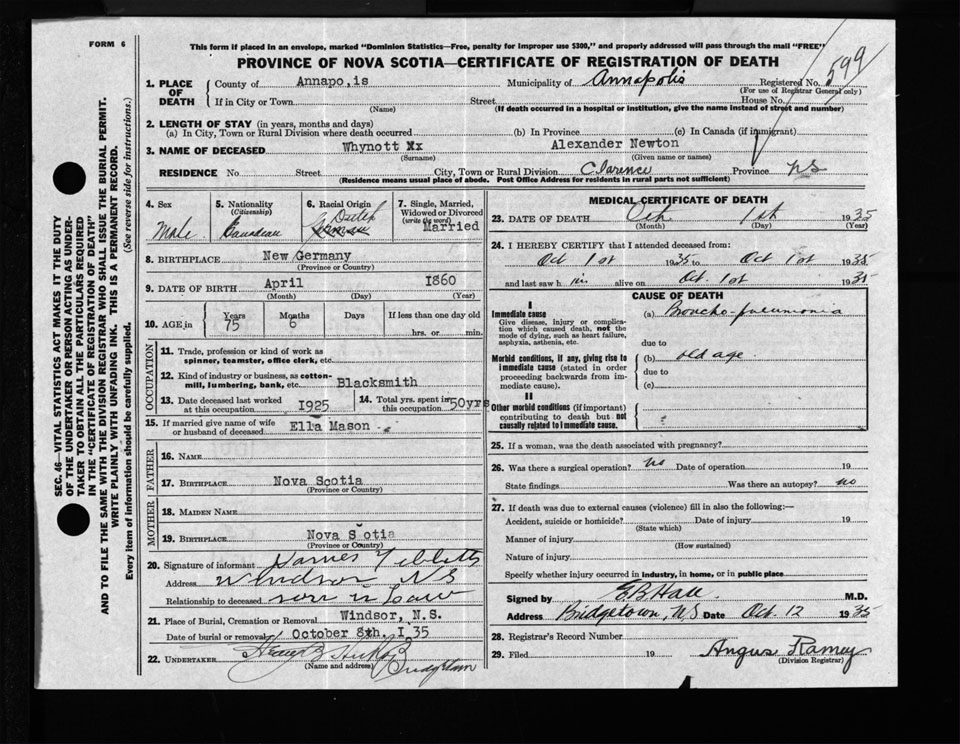 FORM 6
This form if placed in an envelope, marked "Dominion Statistics—Free, penalty for improper use $300," and properly addressed will pass through the mail "FREE"
PROVINCE OF NOVA SCOTIA—CERTIFICATE OF REGISTRATION OF DEATH
1. PLACE OF DEATH
County of Annapo,is Municipality of Annapolis Registered No. 599
(For use of Registrar General only)
If in City or Town Street House No.
(Name) (If death occurred in a hospital or institution, give the name instead of street and number)
2. LENGTH OF STAY (in years, months and days)
(a) In City, Town or Rural Division where death occurred (b) In Province (c) In Canada (if immigrant)
3. NAME OF DECEASED Whynott Xx Alexander Newton
(Surname) (Given name or names)
RESIDENCE No Street City, Town or Rural Division Clarence Province NS
(Residence means usual place of abode. Post Office Address for residents in rural parts not sufficient)
4. Sex Male
5. Nationality (Citizenship) Canadian
6. Racial Origin Dutch
7. Single, Married, Widowed or Divorced (write the word) Married
8. BIRTHPLACE New Germany
(Province or Country)
9. DATE OF BIRTH April 1860
(Month) (Day) (Year)
10. AGE in Years 75 Months 6 Days If less than one day old
hrs. or min.
OCCUPATION
11. Trade, profession or kind of work as spinner, teamster, office clerk, etc.
12. Kind of industry or business, as cotton-mill, lumbering, bank, etc. Blacksmith
13. Date deceased last worked at this occupation I925
14. Total yrs. spent in this occupation 50yrs
15. If married give name of wife or husband of deceased Ella Mason
FATHER
16. NAME
17. BIRTHPLACE Nova Scotia
(Province or Country)
MOTHER
18. MAIDEN NAME
19. BIRTHPLACE Nova S otia
(Province or Country)
20. Signature of informant James
Address Windsor NS
Relationship to deceased son in law
21. Place of Burial, Cremation or Removal Windsor, N.S.
Date of burial or removal October 8th, I 35
22. UNDERTAKER
(Name and address)
MEDICAL CERTIFICATE OF DEATH
23. DATE OF DEATH Oct. 1st 1935
(Month) (Day) (Year)
24. I HEREBY CERTIFY that I attended deceased from:
Oct 1st 1935 to Oct 1st 1935
and last saw h im alive on Oct 1st 1935
CAUSE OF DEATH
I
Immediate cause
Give disease, injury or complication which caused death, not the mode of dying, such as heart failure, asphyxia, asthenia, etc.
(a) Broncho-pneumonia
due to
Morbid conditions, if any, giving rise to immediate cause (stated in order proceeding backwards from immediate cause).
(b) old age.
due to
(c)
II
Other morbid conditions (if important) contributing to death but not causally related to immediate cause.
25. If a woman, was the death associated with pregnancy?
26. Was there a surgical operation? no Date of operation 19
State findings Was there an autopsy? no
27. If death was due to external causes (violence) fill in also the following:—
Accident, suicide or homicide? Date of injury 19
(State which)
Manner of injury
(How sustained)
Nature of injury
Specify whether injury occurred in industry, in home, or in public place
Signed by E.B. Hall M.D.
Address Bridgetown, N.S Date Oct. 12 1935
28. Registrar's Record Number
29. Filed 19 Angus Ramey
(Division Registrar)
SEC. 46—VITAL STATISTICS ACT MAKES IT THE DUTY
OF THE UNDERTAKER OR PERSON ACTING AS UNDER-
TAKER TO OBTAIN ALL THE PARTICULARS REQUIRED
IN THE "CERTIFICATE OF REGISTRATION OF DEATH"
AND TO FILE THE SAME WITH THE DIVISION REGISTRAR WHO SHALL ISSUE THE BURIAL PERMIT.
WRITE PLAINLY WITH UNFADING INK. THIS IS A PERMANENT RECORD.
Every item of information should be carefully supplied. (See reverse side for instructions.)